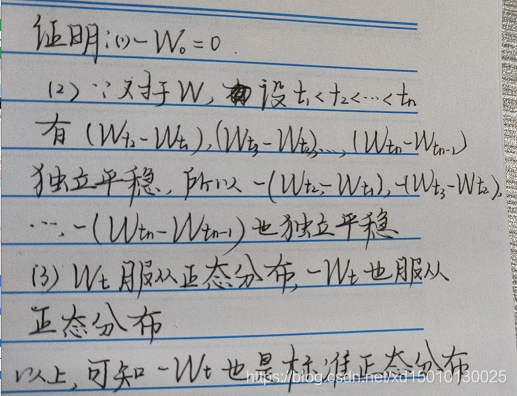 证明:(1) -W₀=0.
(2) ∵对于W, 设t₁<t₂<…<tₙ
有 (Wt₂-Wt₁),(Wt₃-Wt₂),…,(Wtₙ-Wtₙ₋₁)
独立平稳, 所以 -(Wt₂-Wt₁),-(Wt₃-Wt₂),
…,-(Wtₙ-Wtₙ₋₁)也独立平稳
(3) Wt服从正态分布,-Wt也服从
正态分布
以上,可知-Wt也是标准正态分布
https://blog.csdn.net/xd15010130025